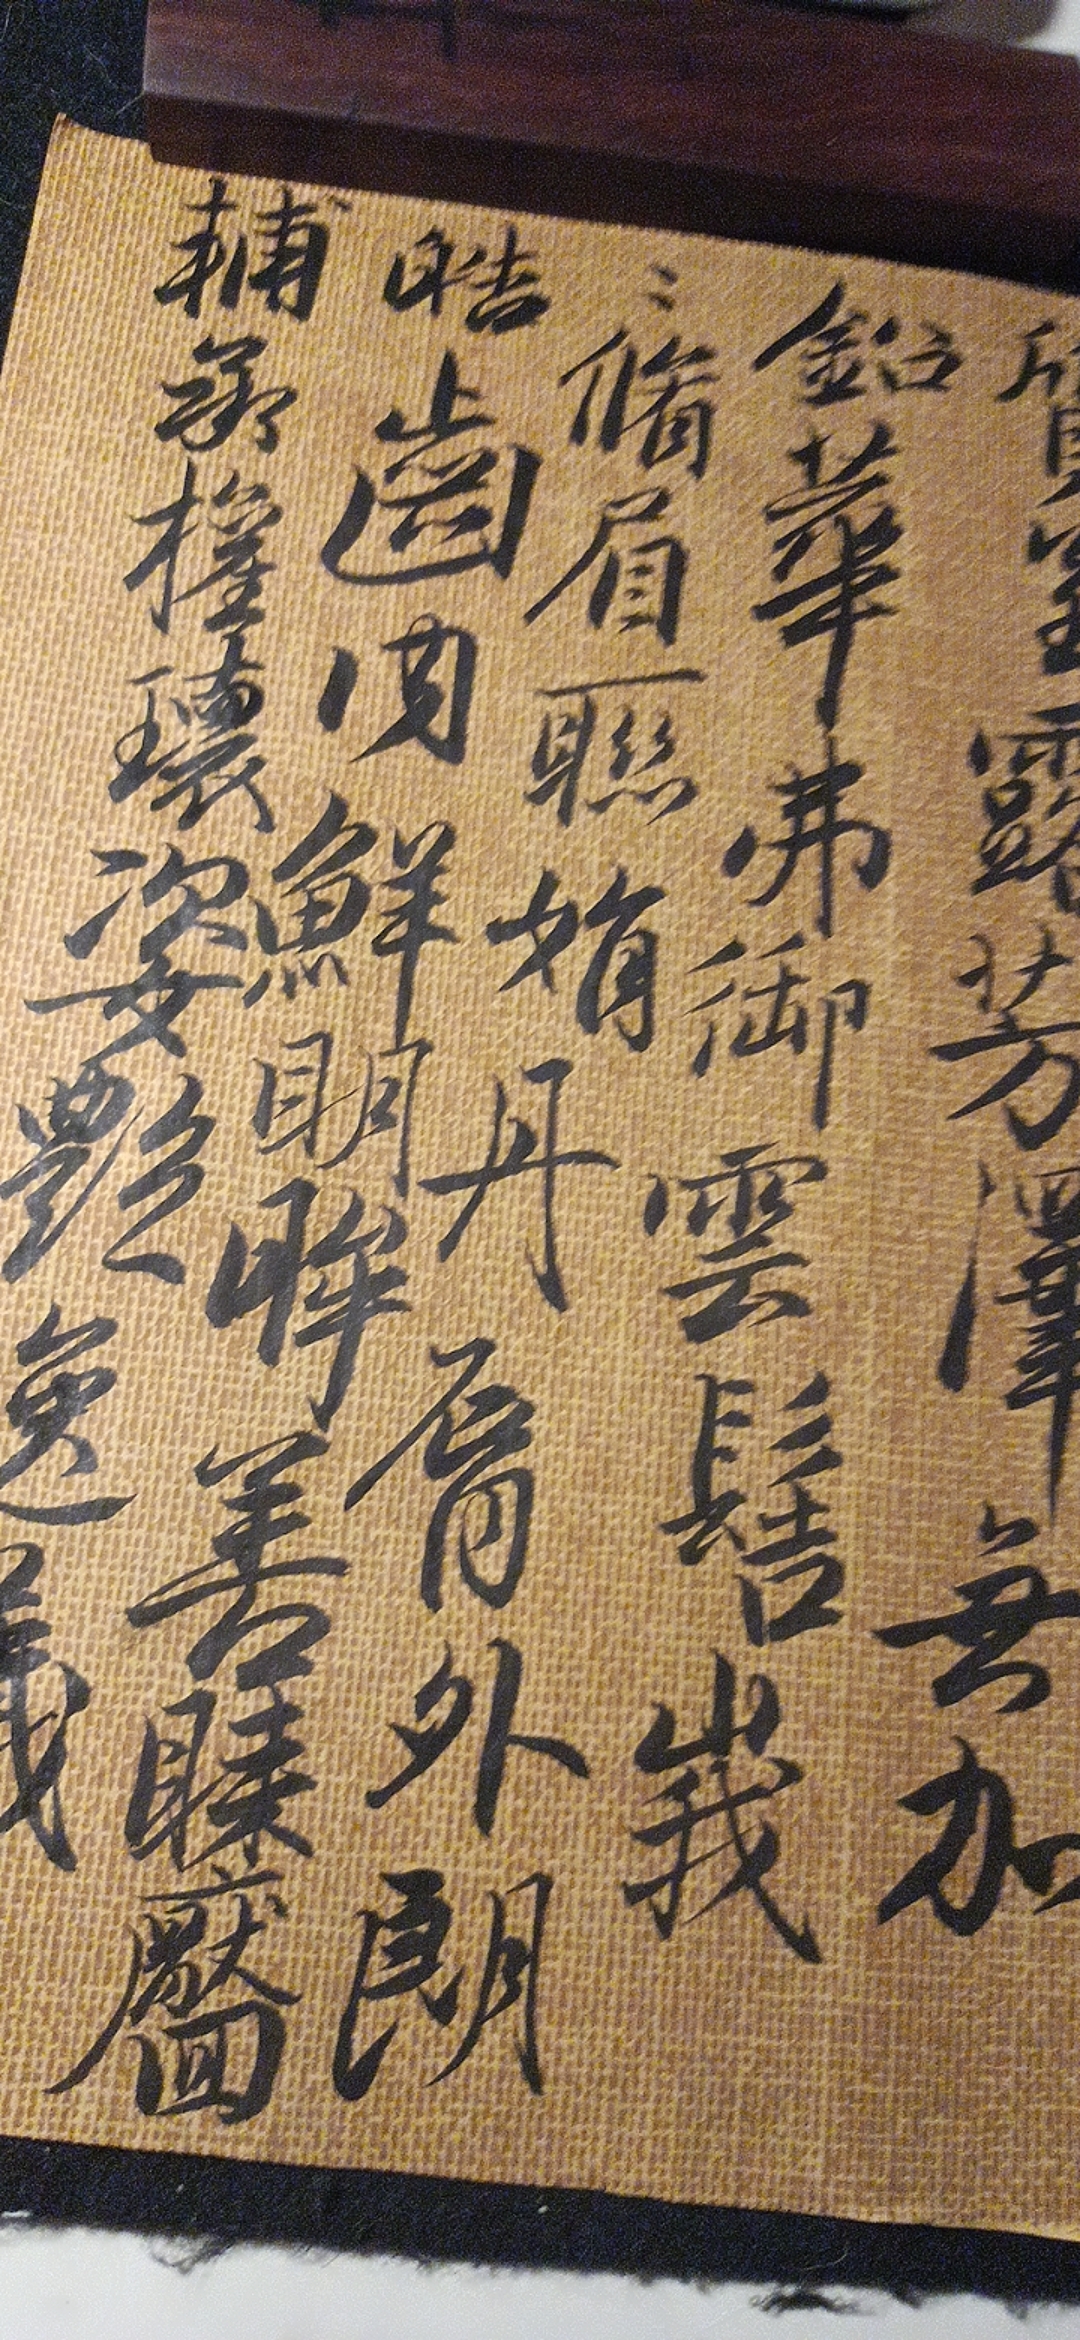 質呈露芳澤無加
鉛華弗御雲髻峨
〻脩眉聯娟丹脣外朗
皓齒內鮮明眸善睞靨
輔承權瓌姿艷逸
儀